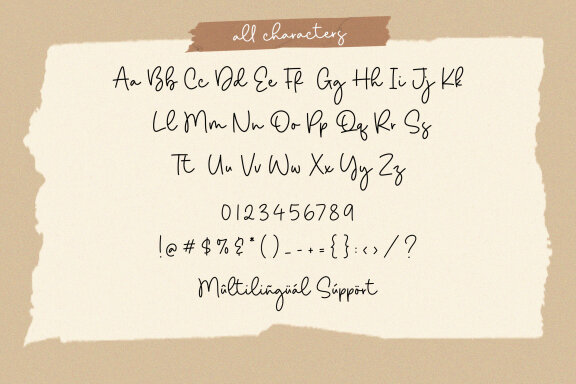 all characters
Aa Bb Cc Dd Ee Ff Gg Hh Ii Jj Kk
Ll Mm Nn Oo Pp Qq Rr Ss
Tt Uu Vv Ww Xx Yy Zz
0123456789
!@#$%&*()_-+={}:<>/?
Múltilíñgüál Súppört